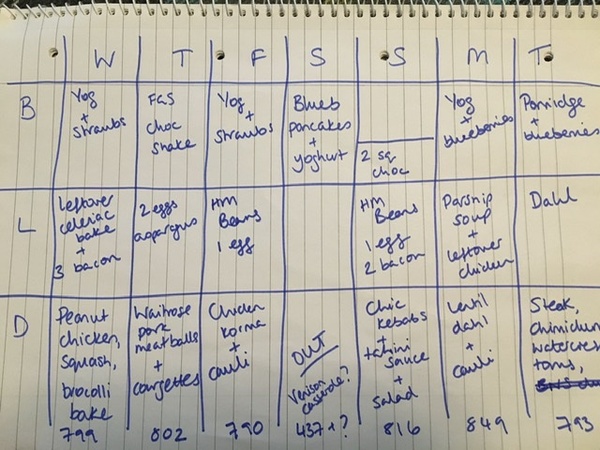 W T F S S M T
B
Yog
+
strawbs
choc
shake
Yog
+
strawbs
Blueb
pancakes
+
yoghurt
2 sq
choc
Yog
+
blueberries
Porridge
+
blueberries
L
leftover
celeriac
bake
+
3 bacon
2 eggs
asparagus
HM
Beans
1 egg
HM
Beans
1 egg
2 bacon
Parsnip
soup
+
leftover
chicken
Dahl
D
Peanut
chicken,
squash,
brocolli
bake
799
Waitrose
pork
meatballs
+
courgettes
802
Chicken
korma
+
cauli
790
OUT
Venison
casserole?
437+?
Chic
kebabs
+
tahini
sauce
+
salad
816
Lentil
dahl
+
cauli
849
Steak,
watercres
toms,
793